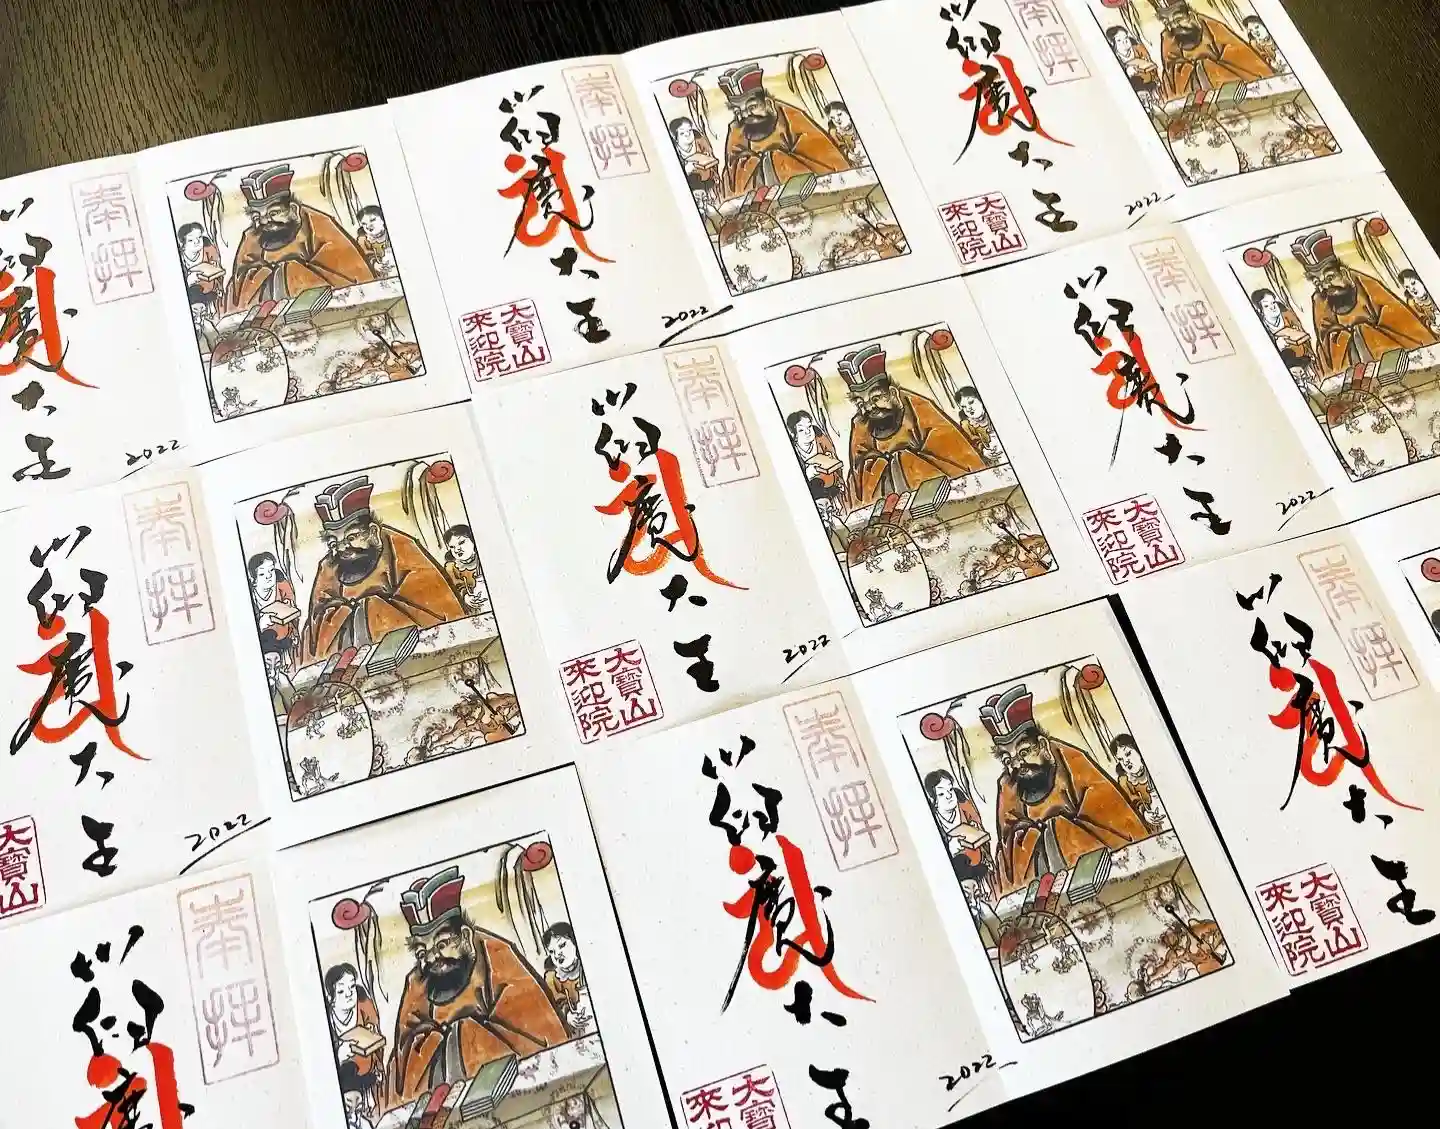 奉拝
閻魔大王
2022
奉拝
閻魔大王
大寶山
來迎院
2022
奉拝
閻魔大王
大寶山
來迎院
2022
奉拝
閻魔大王
大寶山
2022
奉拝
閻魔大王
大寶山
來迎院
2022
奉拝
閻魔大王
大寶山
來迎院
2022
奉拝
閻魔
奉拝
閻魔大王
大寶
來迎
2022
奉拝
閻魔大王
大寶山
來迎院